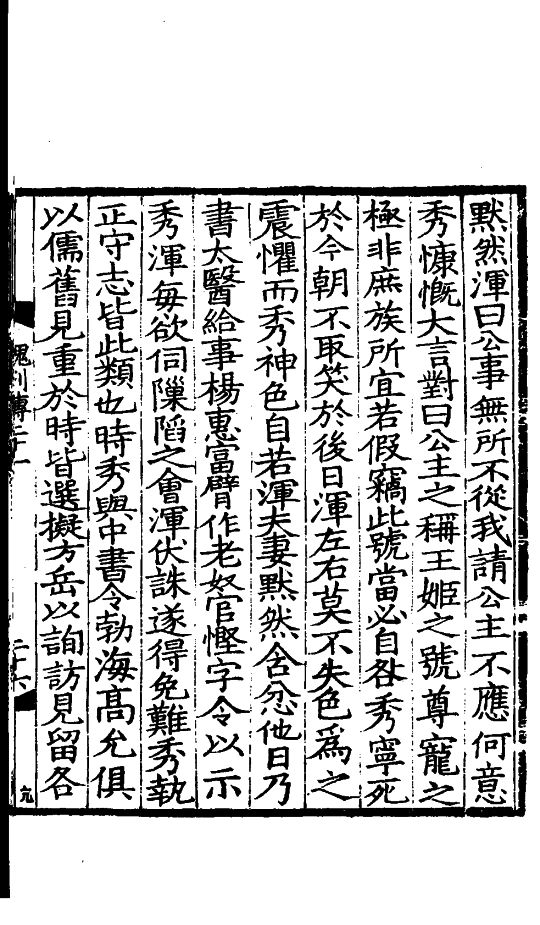 默然渾曰公事無所不從我請公主不應何意
秀慷慨大言對曰公主之稱王姬之號尊寵之
極非庶族所宜若假竊此號當必自咎秀寧死
於今朝不取笑於後日渾左右莫不失色爲之
震懼而秀神色自若渾夫妻默然含忿他日乃
書太醫給事楊惠富臂作老奴官慳字令以示
秀渾每欲伺隟陷之會渾伏誅遂得免難秀執
正守志皆此類也時秀與中書令勃海高允俱
以儒舊見重於時皆選擬方岳以詢訪見留各
魏列傳二十一
二十六